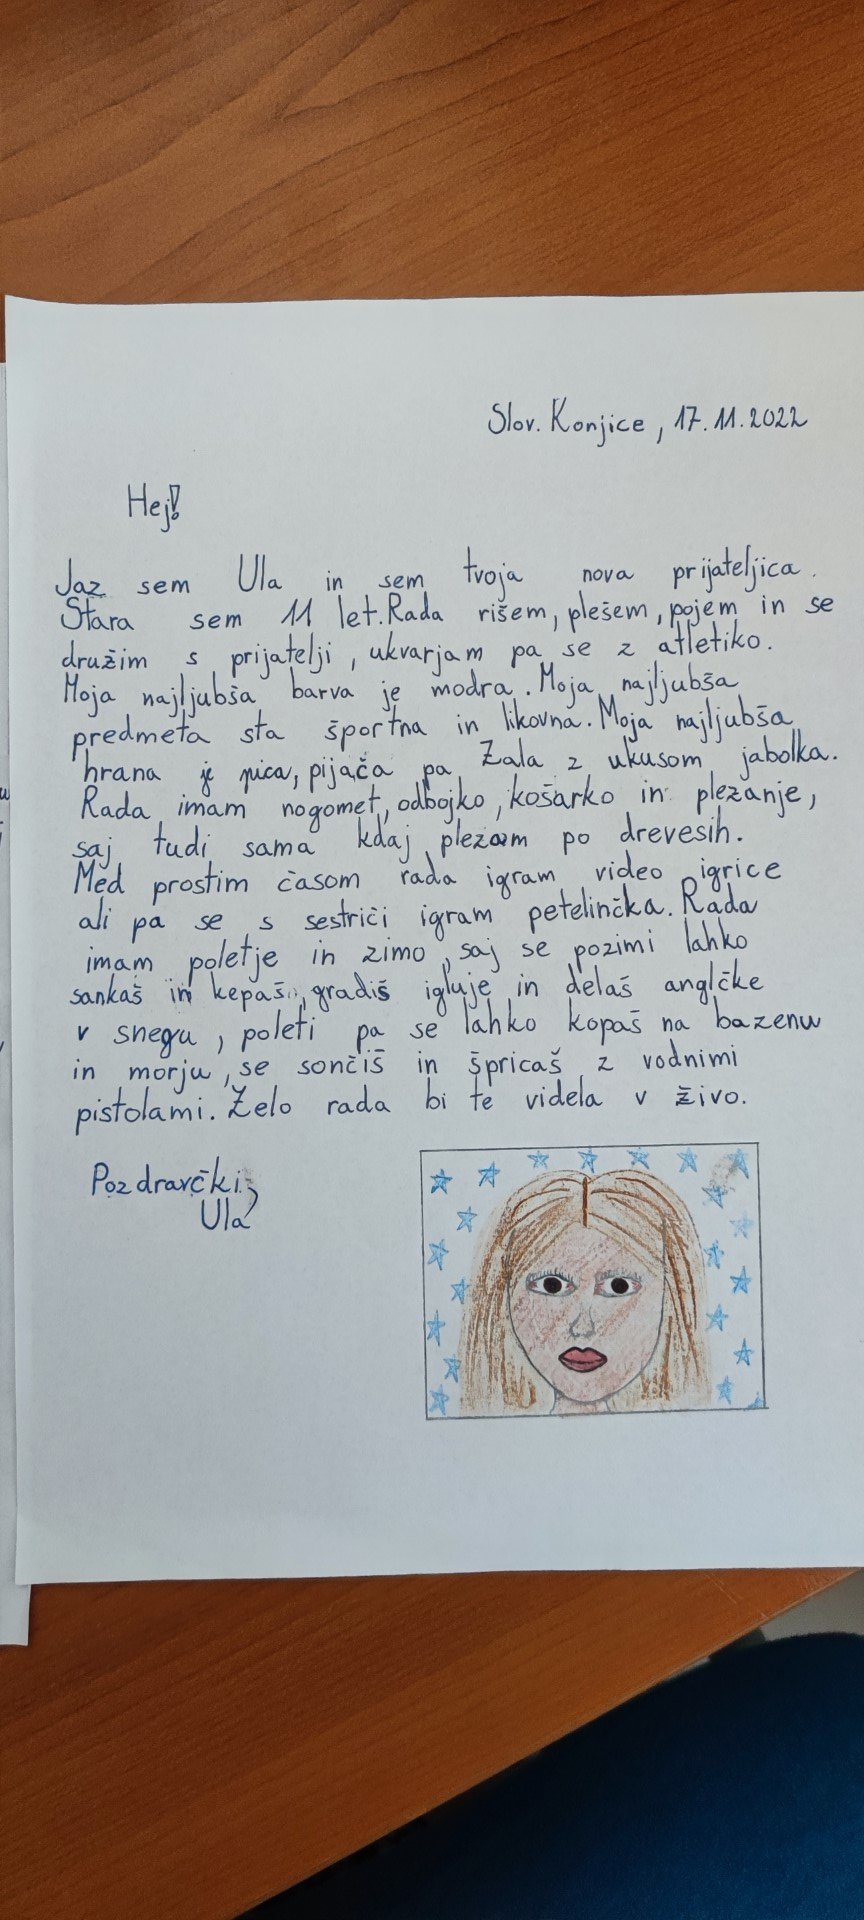 Slov. Konjice, 17.11.2022
Hej!
Jaz sem Ula in sem tvoja nova prijateljica.
Stara sem 11 let. Rada rišem, plešem, pojem in se
družim s prijatelji, ukvarjam pa se z atletiko.
Moja najljubša barva je modra. Moja najljubša
predmeta sta športna in likovna. Moja najljubša
hrana je pica, pijača pa Zala z ukusom jabolka.
Rada imam nogomet, odbojko, košarko in plezanje,
saj tudi sama kdaj plezam po drevesih.
Med prostim časom rada igram video igrice
ali pa se s sestrici igram petelinčka. Rada
imam poletje in zimo, saj se pozimi lahko
sankaš in kepaš, gradiš igluje in delaš anglčke
v snegu, poleti pa se lahko kopaš na bazenu
in morju, se sončiš in špricaš z vodnimi
pistolami. Zelo rada bi te videla v živo.
Pozdravčki,
Ula